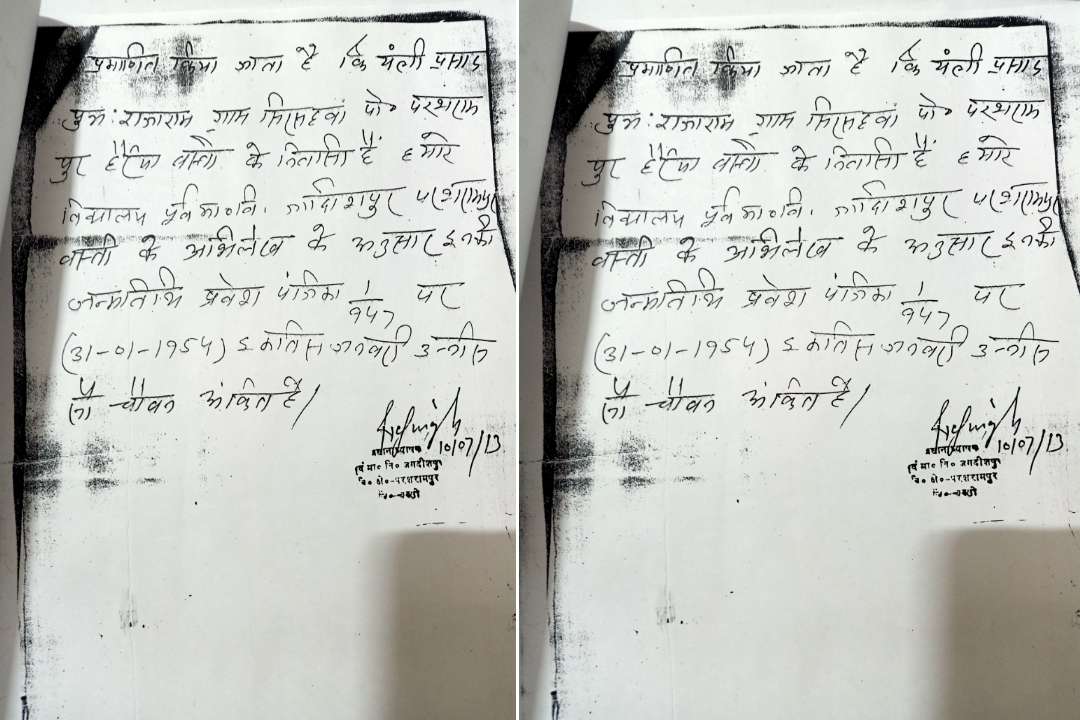 प्रमाणित किया जाता है कि बंशी प्रसाद
पुत्र: राजाराम ग्राम सिसहवां पो० परशराम
पुर हरैया बस्ती के निवासी हैं हमारे
विद्यालय पूर्व मा० वि. जगदीशपुर परशरामपुर
बस्ती के अभिलेख के अनुसार इनकी
जन्मतिथि प्रवेश पंजिका 1/947 पर
(31-01-1954) इकतिस जनवरी उन्नीस
सौ चौवन अंकित है/
10/07/13
प्रधानाध्यापक
पू० मा० वि० जगदीशपुर
वि० क्षे०-परशरामपुर
जि०-बस्ती
प्रमाणित किया जाता है कि बंशी प्रसाद
पुत्र: राजाराम ग्राम सिसहवां पो० परशराम
पुर हरैया बस्ती के निवासी हैं हमारे
विद्यालय पूर्व मा० वि. जगदीशपुर परशरामपुर
बस्ती के अभिलेख के अनुसार इनकी
जन्मतिथि प्रवेश पंजिका 1/947 पर
(31-01-1954) इकतिस जनवरी उन्नीस
सौ चौवन अंकित है/
10/07/13
प्रधानाध्यापक
पू० मा० वि० जगदीशपुर
वि० क्षे०-परशरामपुर
जि०-बस्ती